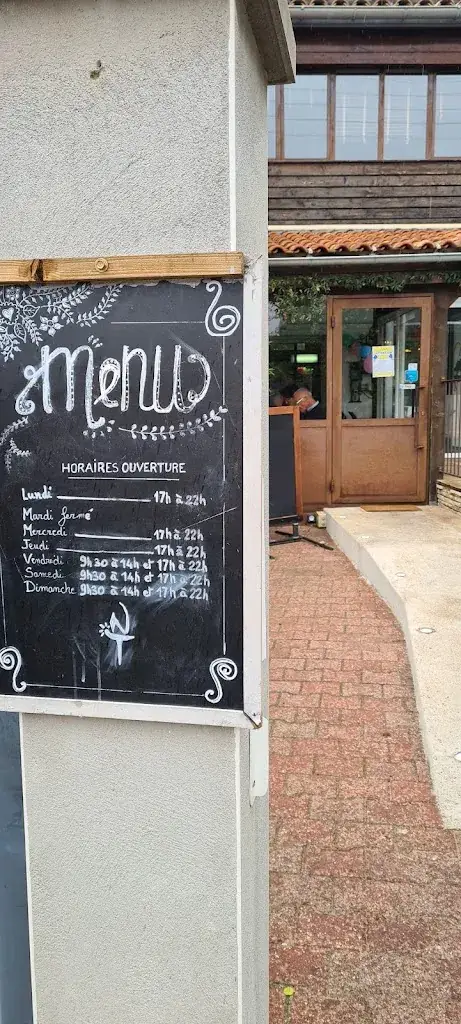 Menu
HORAIRES OUVERTURE
Lundi 17h à 22h
Mardi fermé
Mercredi 17h à 22h
Jeudi 17h à 22h
Vendredi 9h30 à 14h et 17h à 22h
Samedi 9h30 à 14h et 17h à 22h
Dimanche 9h30 à 14h et 17h à 22h